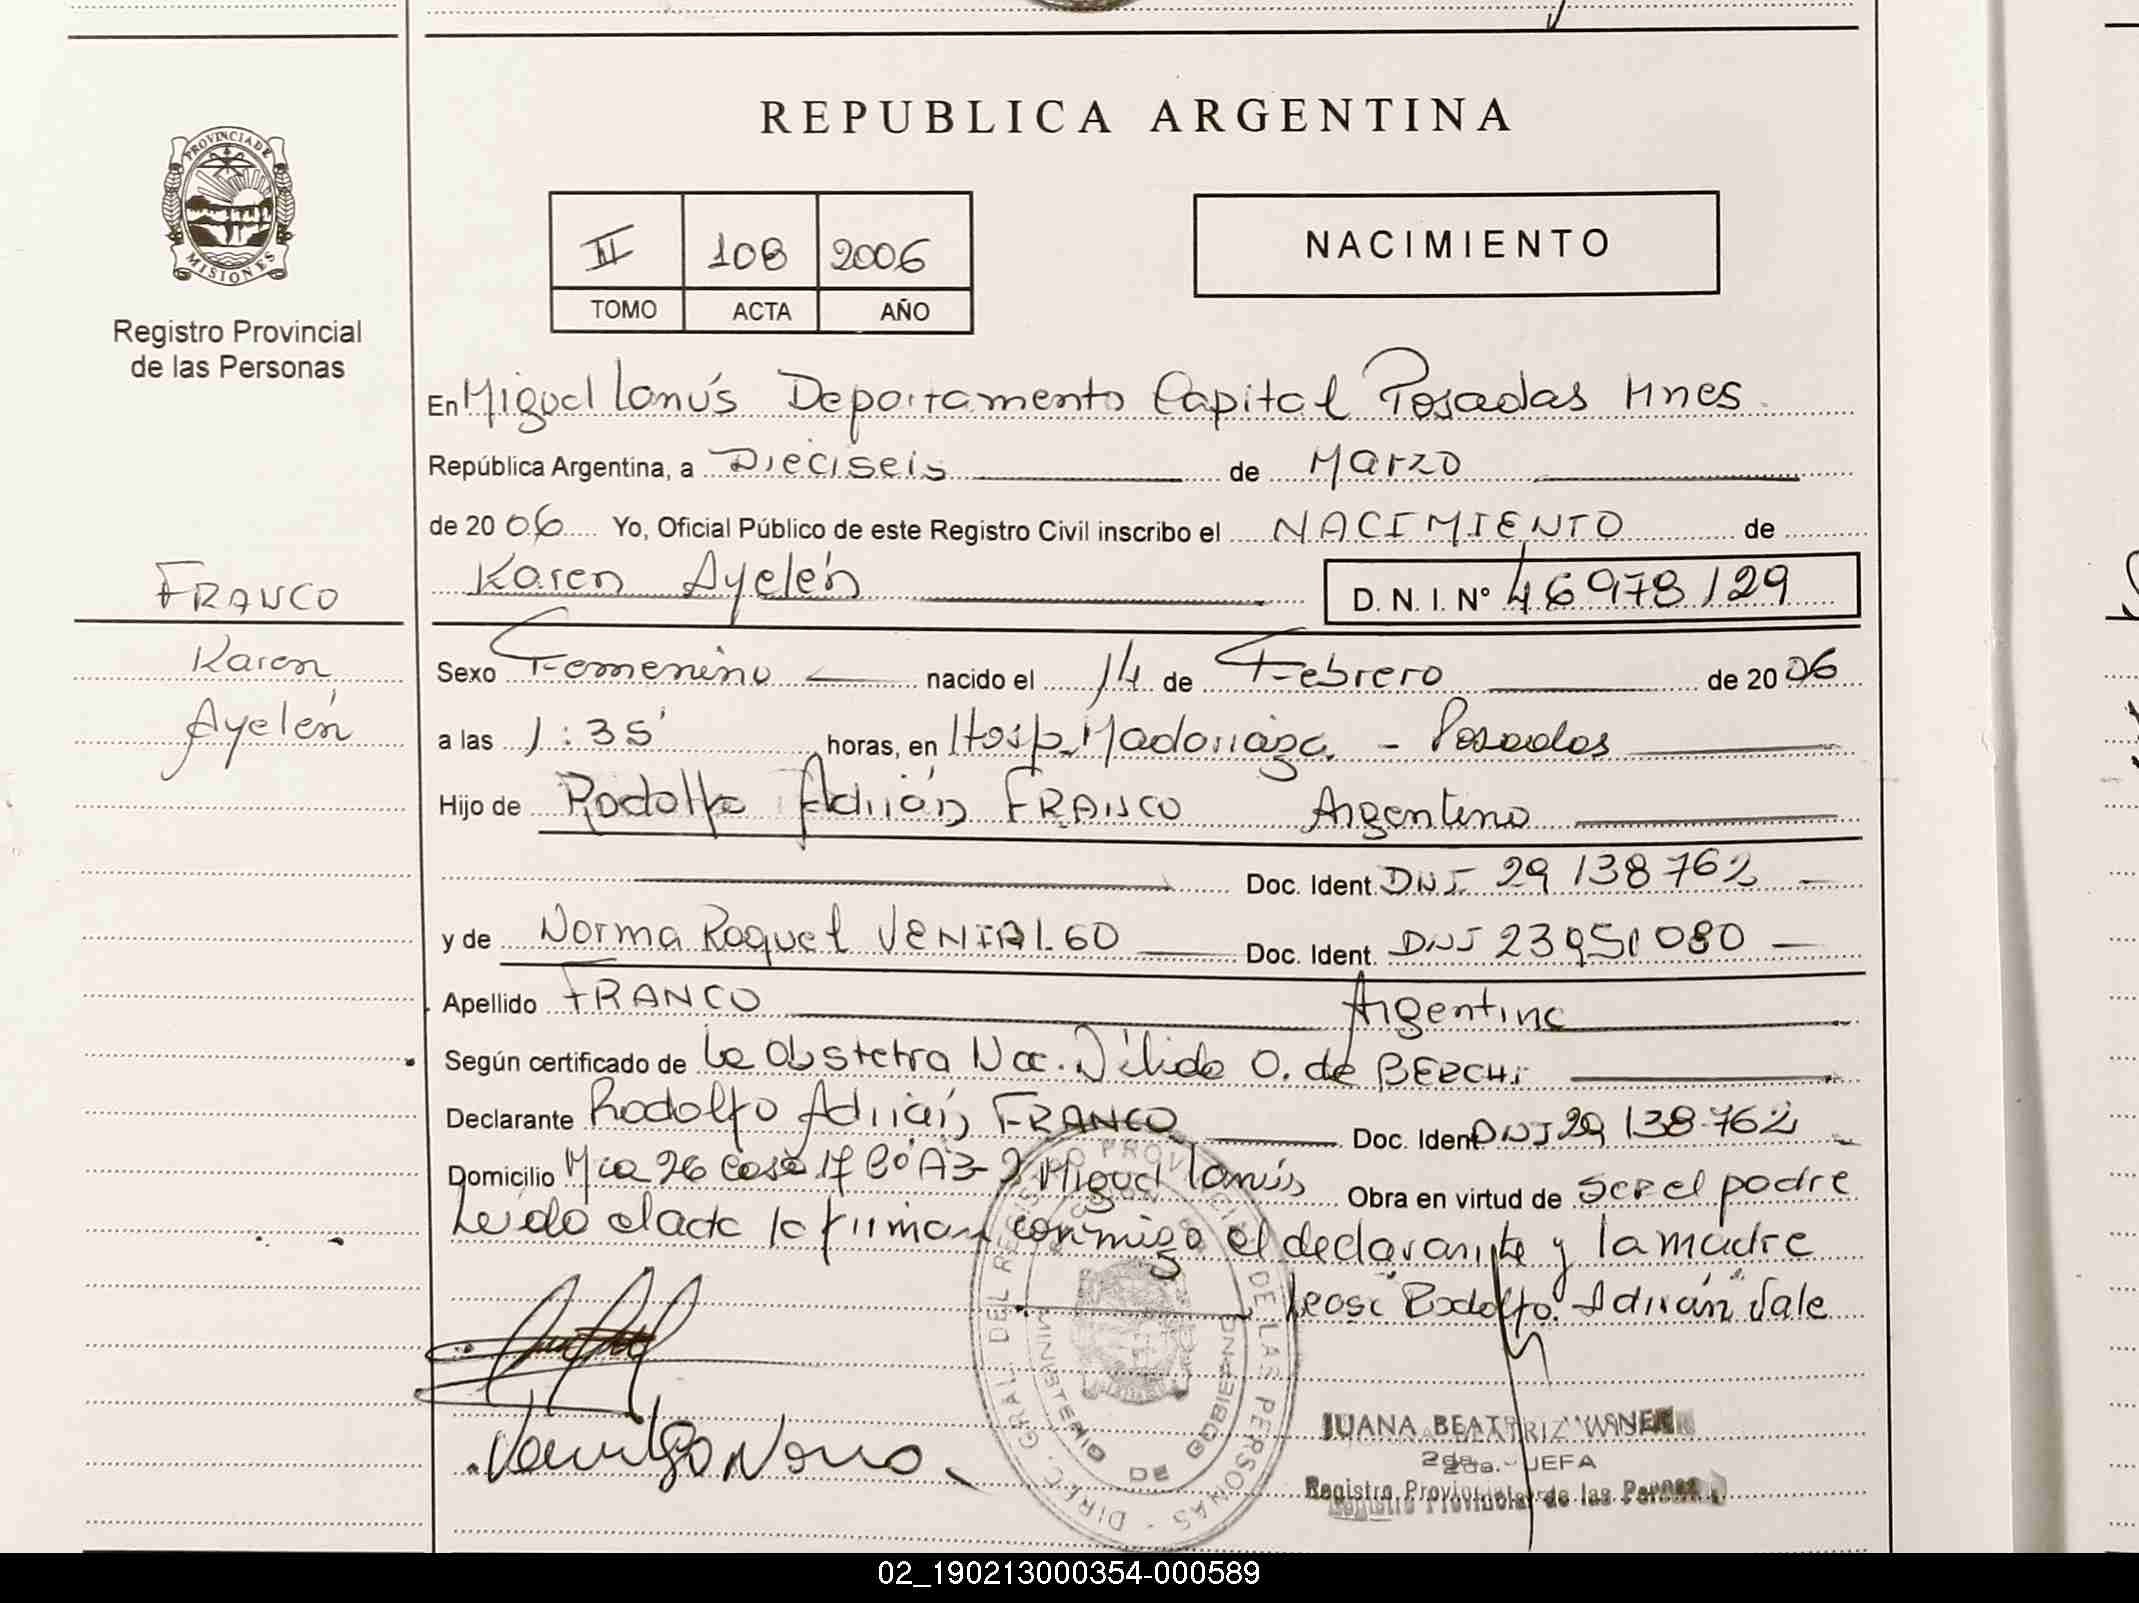 REPUBLICA ARGENTINA
PROVINCIA DE
MISIONES
Registro Provincial
de las Personas
II 108 2006
TOMO ACTA AÑO
NACIMIENTO
En Miguel Lanús Departamento Capital Posadas Mnes
República Argentina, a Dieciseis de Marzo
de 2006 Yo, Oficial Público de este Registro Civil inscribo el NACIMIENTO de
Karen Ayelén D. N. I. N° 46978129
FRANCO
Karen
Ayelén
Sexo Femenino nacido el 14 de Febrero de 2006
a las 1:35' horas, en Hosp. Madariaga. - Posadas
Hijo de Rodolfo Adrián FRANCO Argentino
Doc. Ident. DNI 29138762
y de Norma Raquel VENIALGO Doc. Ident. DNI 23951080
Apellido FRANCO Argentina
Según certificado de la Obstetra Nac. Nélida O. de
Declarante Rodolfo Adrián FRANCO Doc. Ident. DNI 29138762
Domicilio 26 Casa 17 A3-2 Miguel Lanús Obra en virtud de ser el padre
Leído el acta la firman conmigo el declarante y la madre
Lease Rodolfo Adrián Vale
DIREC. GRAL. DEL REGISTRO PROVINCIAL DE LAS PERSONAS
MINISTERIO DE GOBIERNO
JUANA BEATRIZ
2da. JEFA
Registro Provincial de las Personas
02_190213000354-000589